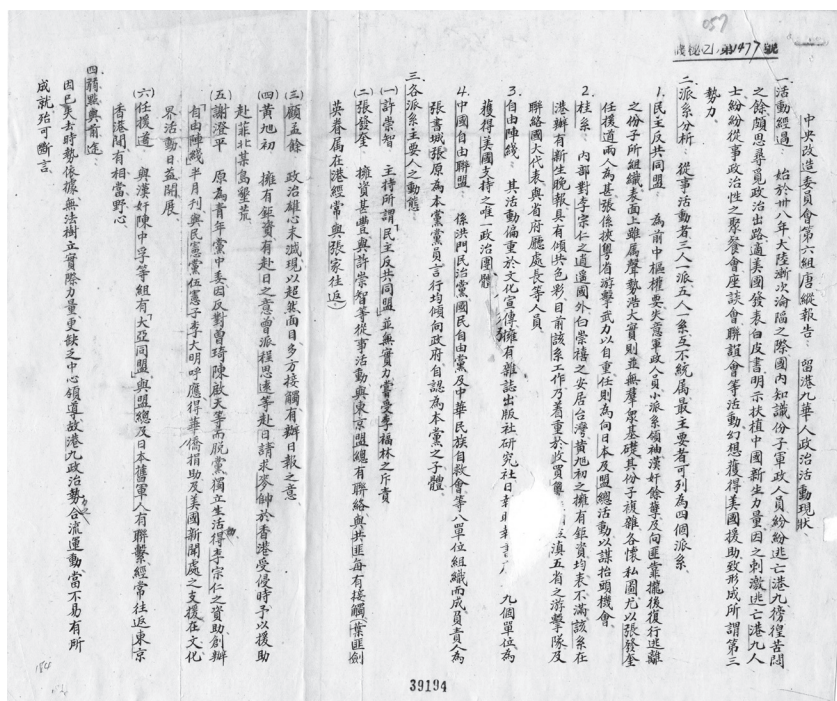 057
中央改造委員會第六組唐縱報告：留港九華人政治活動現狀、
一、活動經過：始於卅八年大陸漸次淪陷之際國內知識份子軍政人員紛紛逃亡港九徬徨苦悶
之餘頗思尋覓政治出路適美國發表白皮書明示扶植中國新生力量因之刺激逃亡港九人
士紛紛從事政治性之聚餐會座談會聯誼會等活動幻想獲得美國援助致形成所謂第三
勢力、
二、派系分析：從事活動者三人一派五人一系互不統屬最主要者可列為四個派系、
1.民主反共同盟：為前中樞權要失意軍政人員小派系領袖漢奸餘孽及向匪靠攏後復行逃離
之份子所組織表面上雖屬聲勢浩大實則並無羣衆基礎其份子複雜各懷私圖尤以張發奎
任援道兩人為甚張係挾粵省游擊武力以自重任則為向日本及盟總活動以謀抬頭機會、
2.桂系：內部對李宗仁之逍遙國外白崇禧之安居台灣黃旭初之擁有鉅資均表不滿該系在
港辦有新生晚報具有傾共色彩目前該系工作乃着重於收買 滇五省之游擊隊及
聯絡國大代表與省府廳處長等人員、
3.自由陣綫：其活動偏重於文化宣傳擁有雜誌出版社研究社日報 九個單位為
獲得美國支持之唯一政治團體
4.中國自由聯盟：係洪門民治黨國民自由黨及中華民族自救會等八單位組織而成員責人為
張書城張原為本黨黨員言行均傾向政府自認為本黨之子體、
三、各派系主要人之動態：
(一)許崇智：主持所謂「民主反共同盟」並無實力嘗受李福林之斥責
(二)張發奎：擁資甚豐與許崇智等從事活動與東京盟總有聯絡與共匪每有接觸(葉匪劍
英眷屬在港經常與張家往返)
(三)顧孟餘：政治雄心未滅現以超然面目多方接觸有辦日報之意、
(四)黃旭初：擁有鉅資有赴日之意曾派程思遠等赴日請求麥帥於香港受侵時予以援助
赴菲北某島墾荒、
(五)謝澄平：原為青年黨中委因反對曾琦陳啟天等而脫黨獨立生活得李宗仁之資助創辦
「自由陣綫」半月刊與民憲黨伍憲子李大明呼應得華僑捐助及美國新聞處之支援在文化
界活動日益開展、
(六)任援道：與漢奸陳中孚等組有「大亞同盟」與盟總及日本舊軍人有聯繫經常往返東京
香港間有相當野心
四、癥結與前途：
因已失去時勢依據無法樹立實際力量更缺乏中心領導故港九政治勢力合流運動當不易有所
成就殆可斷言、
39194